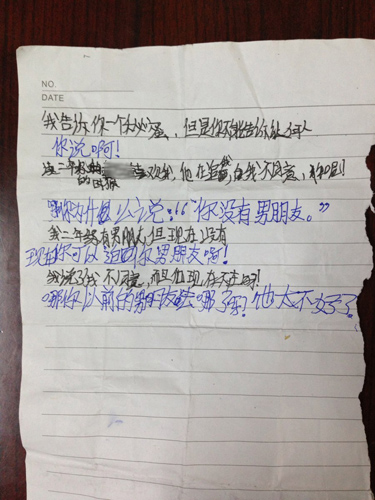 NO.
DATE
我告诉你一个秘密,但是你不能告诉任何人
你说啊!
喜欢我,他在 我不同意,
的
那你为什么么说:“你没有男朋友。”
我二年级有男朋友,但现在没有
现在你可以 回你男朋友啊!
我说了我不同意,而且他现在
那你以前的男朋友 哪了呀!他太不好了